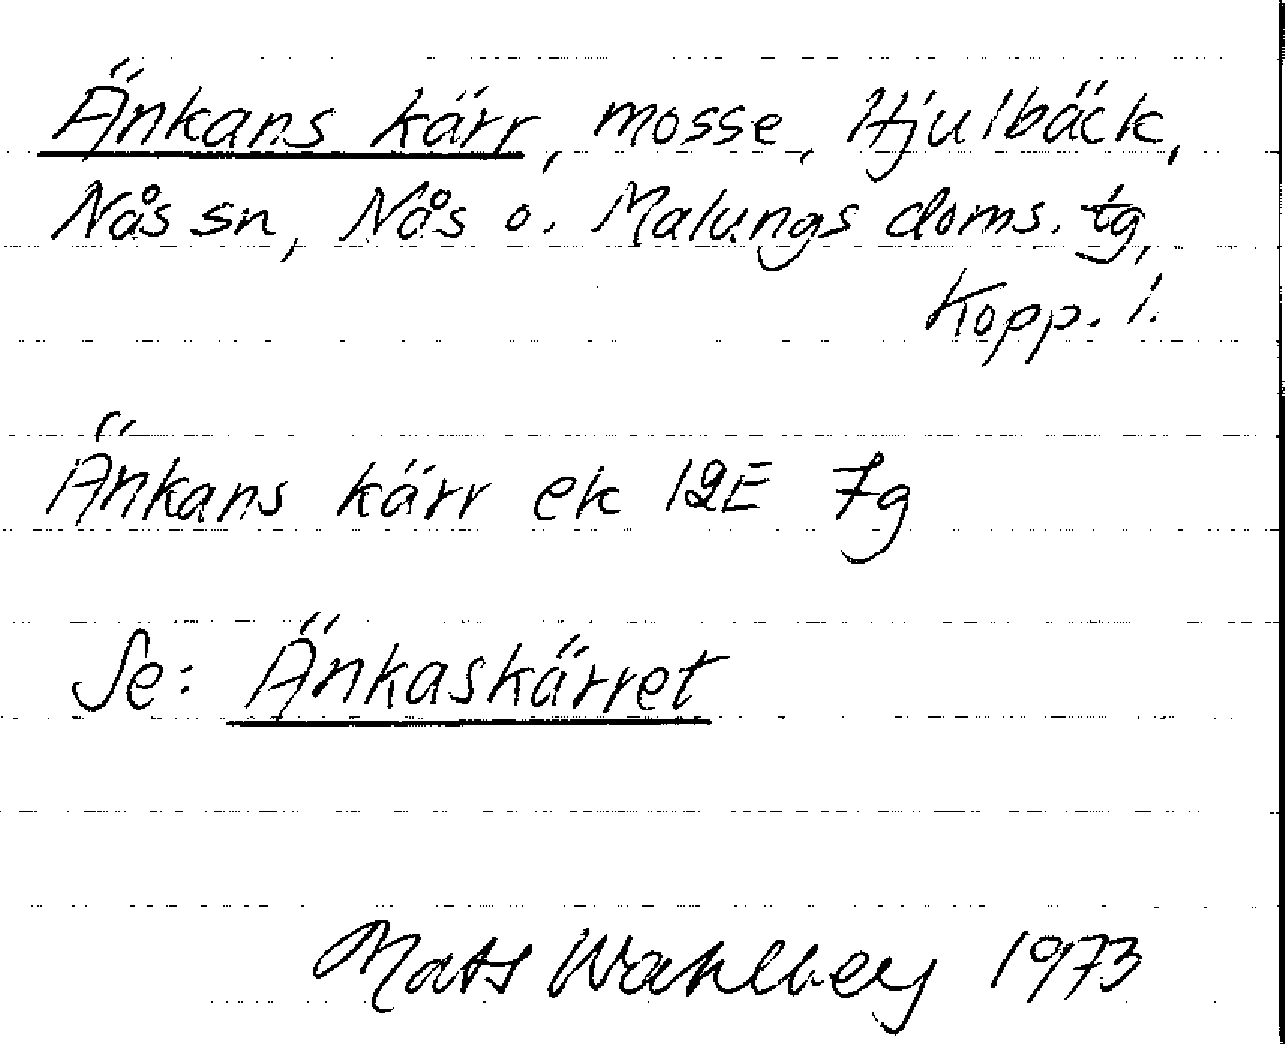 Änkans kärr, mosse, Hjulbäck,
Nås sn, Nås o. Malungs doms. tg,
Kopp. l.
Änkans kärr ek 12E 7g
Se: Änkaskärret
Mats Wahlberg 1973